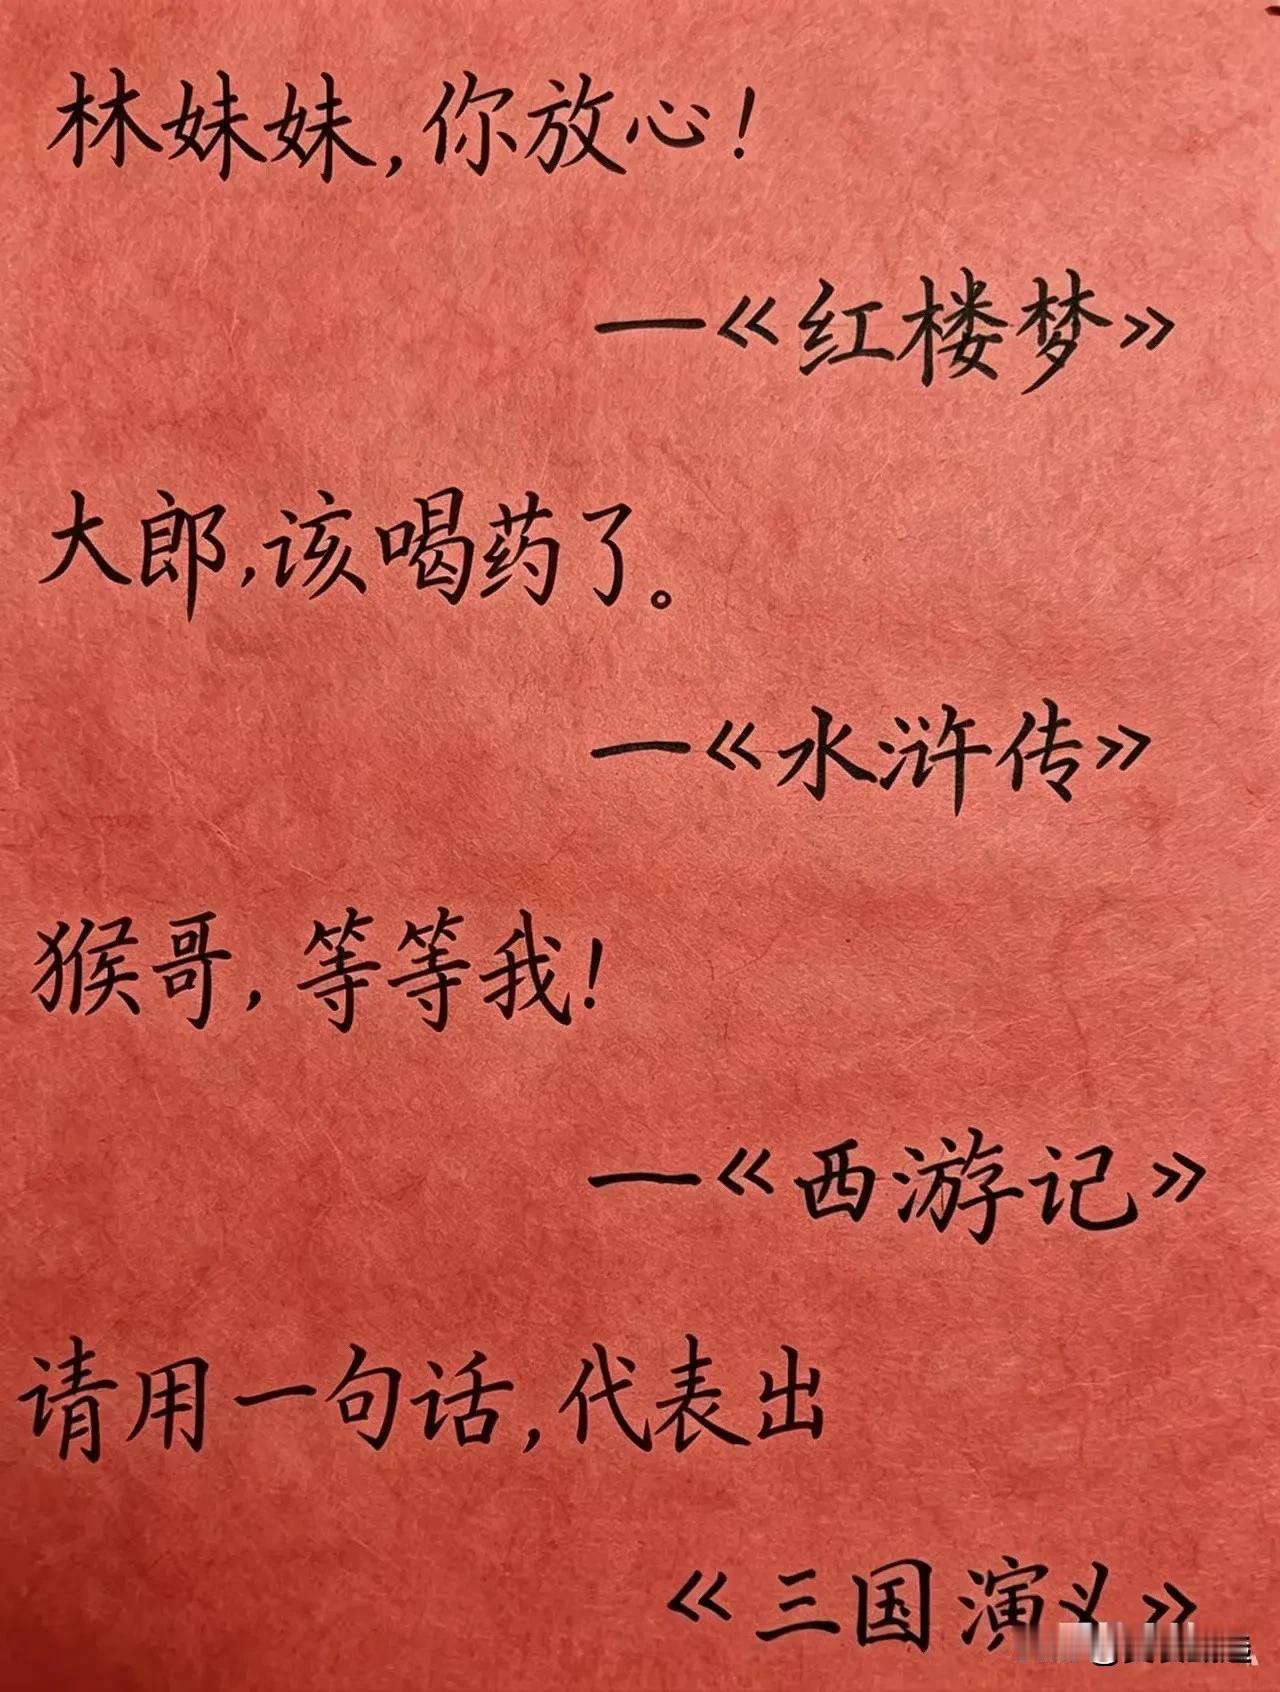 林妹妹,你放心!
—《红楼梦》
大郎,该喝药了。
—《水浒传》
猴哥,等等我!
—《西游记》
请用一句话,代表出
《三国演义》